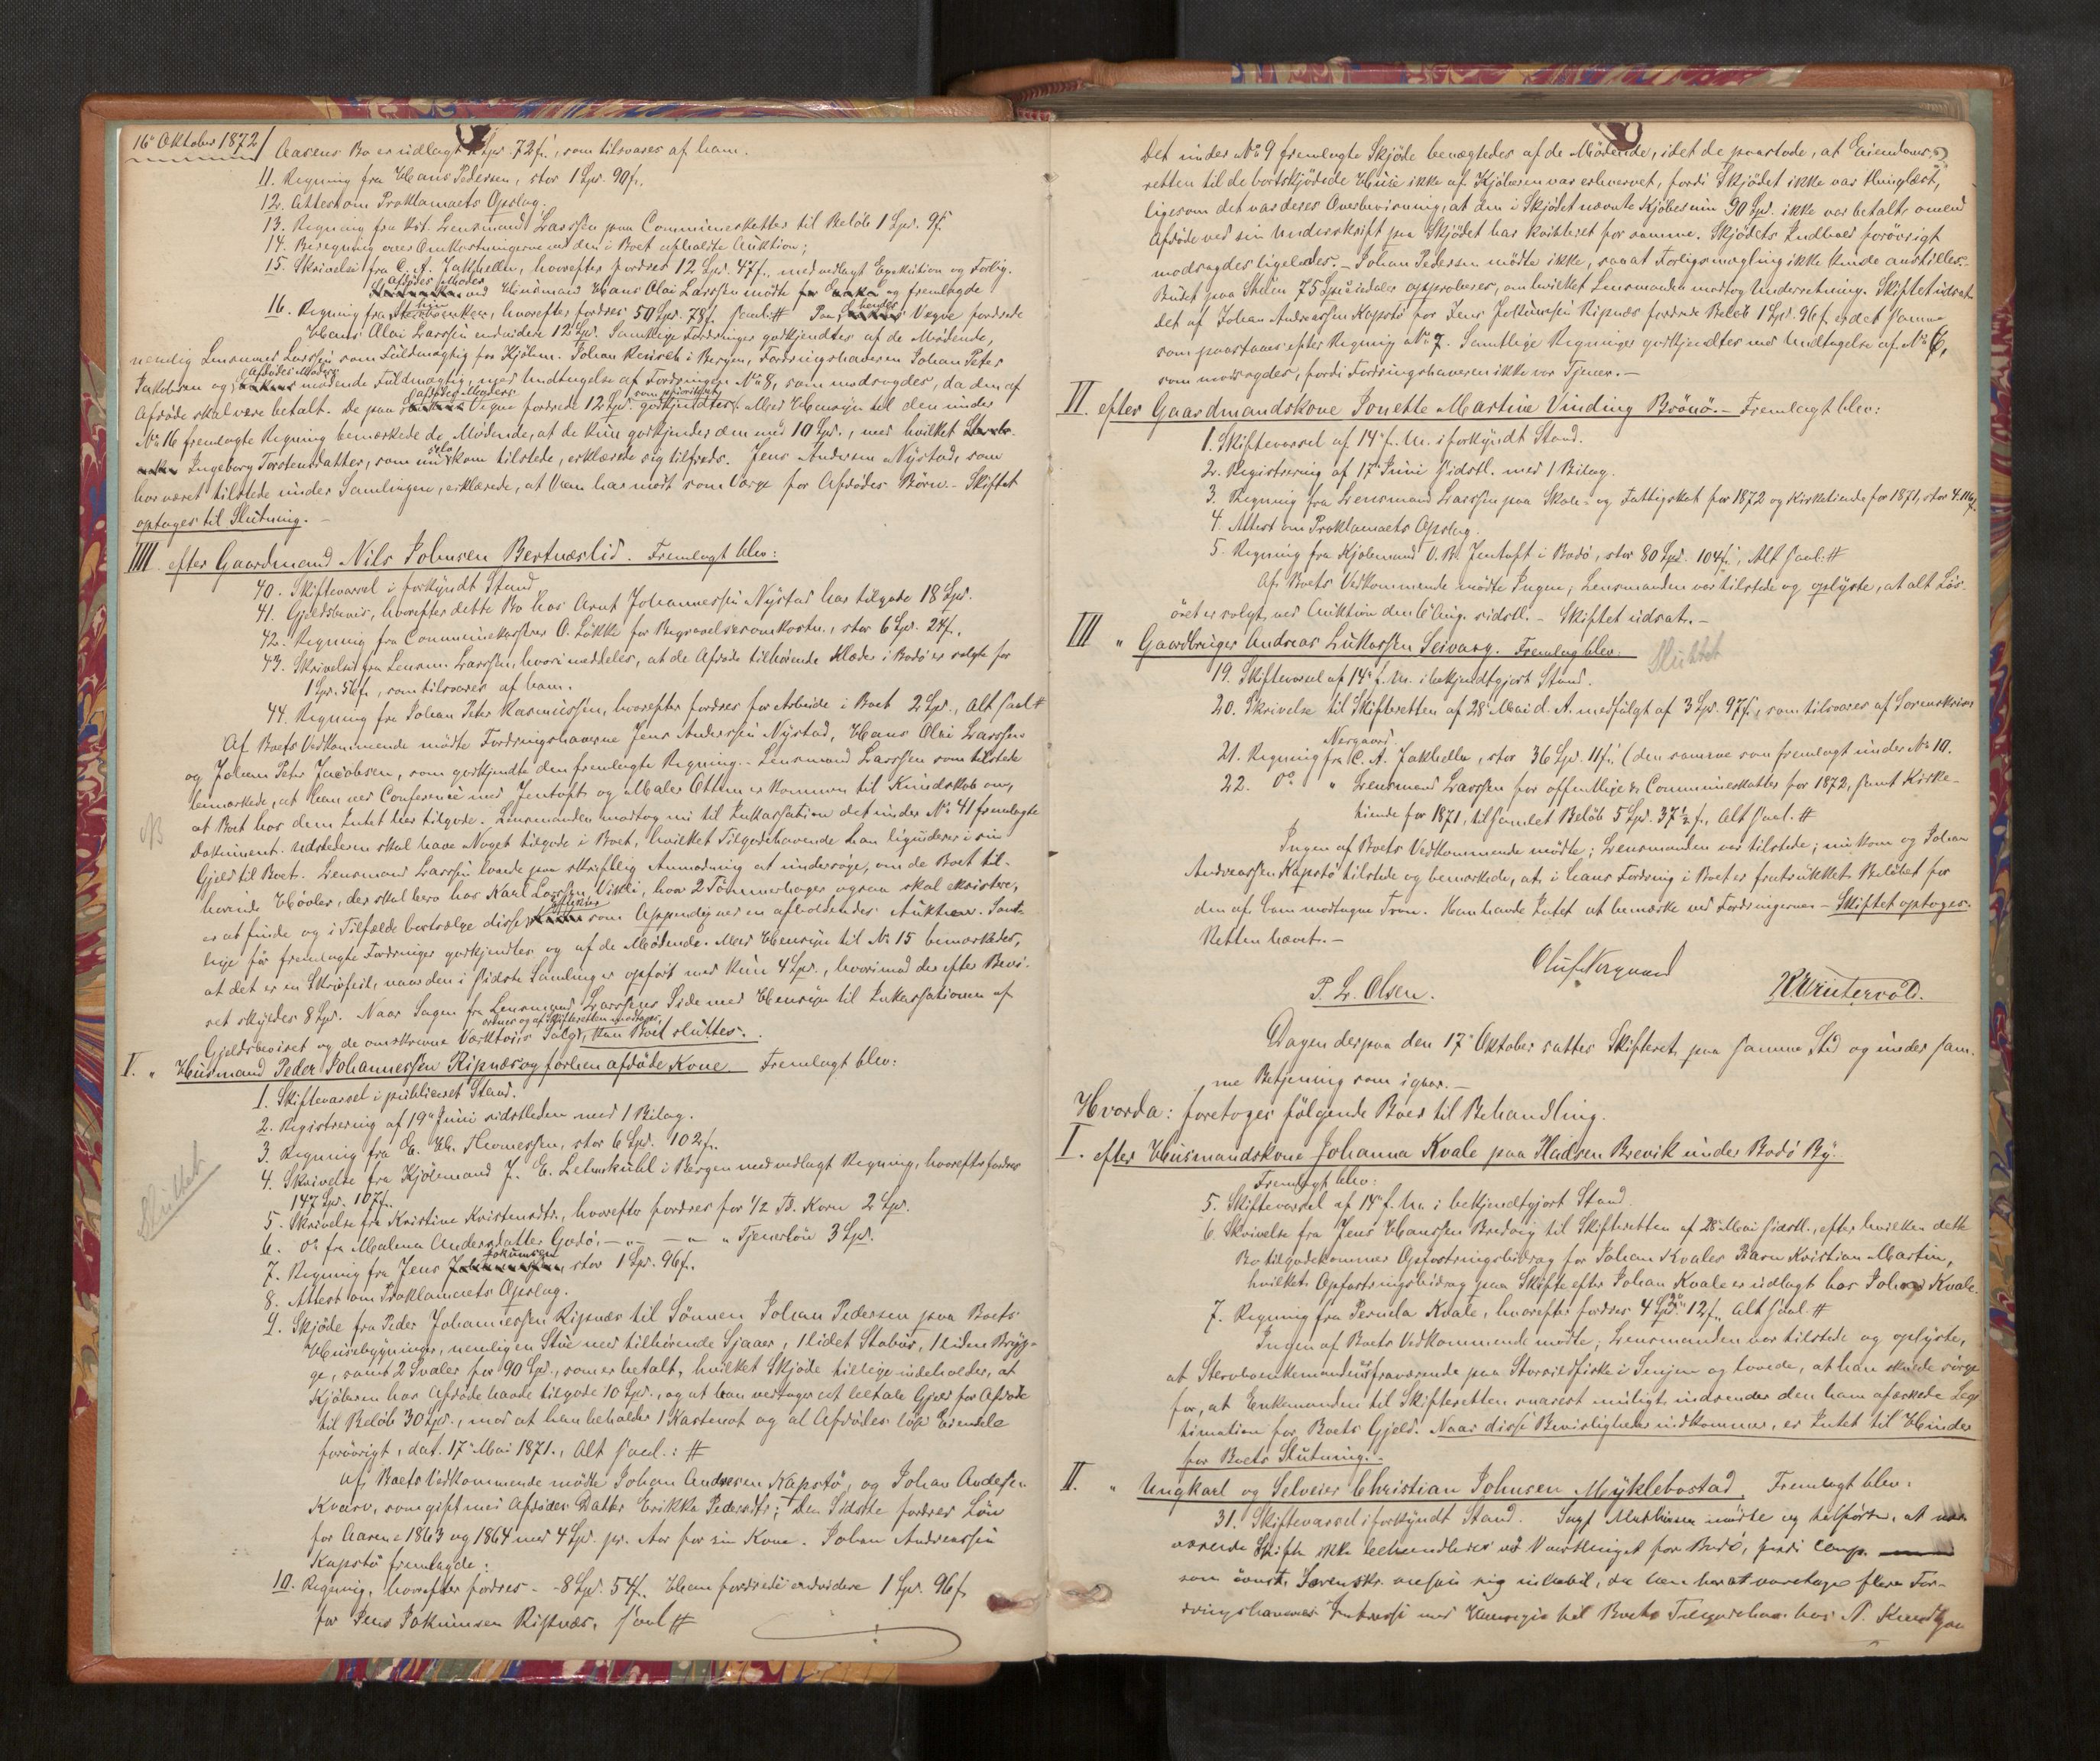 16de Oktober 1872
Aasens Bo er udlagt Spd. 72 f, som tilsvares af ham.
11. Regning fra Hans Pedersen, stor 1 Spd. 90 f.
12. Attest om Proklamaets Opslag.
13. Regning fra Lensmand Larssen paa Communeskatter til Beløb 1 Spd. 9 f.
14. Beregning over Omkostningerne ved den i Boet afholdte Auktion;
15. Skrivelse fra C. A. Jakhelln, hvorefter fordres 12 Spd. 47 f., med vedlagt Exekution og Forlig.
Afdødes Moder
ved Husmand Hans Olai Larssen mødte og fremlagde
16. Regning fra hvorefter fordres 50 Spd. 78 f. saal: # Paa hendes Vegne fordrede
Hans Olai Larssen endvidere 12 Spd. Samtlige Fordringer godkjendtes af de Mødende,
nemlig Lensmand Larssen som Fuldmægtig for Kjøbm. Johan Reusch i Bergen, Fordringshaveren Johan Peter
Jakobsen og Afdødes Moders mødende Fuldmægtig, med Undtagelse af Fordringen No 8, som modsagdes, da den af
Afdøde skal være betalt. De paa Afdødes Moders Vegne fordrede 12 Spd. godkjendtes som prioriteret. Med Hensyn til den under
No 16 fremlagte Regning bemærkede de Mødende, at de kun godkjender den med 10 Spd., med hvilket
Ingeborg Torstensdatter, som nu selv kom tilstede, erklærede sig tilfreds. Jens Andersen Nystad, som
har været tilstede under Samlingen, erklærede, at Han har mødt som Værge for Afdødes Børn. - Skiftet
optages til Slutning. -
IIII. efter Gaardmand Nils Johnsen Bertnæslid. Fremlagt blev:
40. Skiftevarsel i forkyndt Stand
41. Gjeldsbevis, hvorefter dette Bo hos Arnt Johannessen Nystad har tilgode 18 Spd.
42. Regning fra Communekasserer O. Løkke for Begravelsesomkostn., stor 6 Spd. 24 f.
43. Skrivelse fra Lensm. Larssen, hvori meddeles, at de Afdøde tilhørende Klæder i Bodø er solgte for
1 Spd. 56 f., som tilsvares af ham.
44. Regning fra Johan Peter Rasmussen, hvorefter fordres for Arbeide i Boet 2 Spd., Alt saal #
Af Boets Vedkommende mødte Fordringshaverne Jens Anderssen Nystad, Hans Olai Larssen
og Johan Peter Jacobsen, som godkjendte den fremlagte Regning. - Lensmand Larssen som tilstede
bemærkede, at Han ved Conference med Jentoft og Maler Ottem er kommen til Kundskab om,
at Boet hos dem Intet har tilgode. Lensmanden modtog nu til Inkassation det under No 41 fremlagte
Dokument. Udstederen skal have Noget tilgode i Boet, hvilket Tilgodehavende han liquiderer i sin
Gjeld til Boet. Lensmand Larssen lovede paa skriftlig Anmodning at undersøge, om de Boet til-
hørende Høvler, der skal bero hos Karl Larssen Viken, hvor 2 Tømmerhager ogsaa skal existere,
er at finde og i Tilfælde bortsælge disse Effekter som Appendix ved en afholdendes Auktion. Samt-
lige før fremlagte Fordringer godkjendtes og af de Mødende. Med Hensyn til No 15 bemærkedes,
at det er en Skrivfeil, naar den i sidste Samling er opført med kun 4 Spd., hvorimod der efter Bevi-
set skyldes 8 Spd. Naar Sagen fra Lensmand Larssens Side med Hensyn til Inkassationen af
Gjeldsbeviset og de omskrevne Værktøis Salg ordnes og af Skifteretten modtages, kan Boet sluttes. -
V. " Husmand Peder Johannessen Ripnæs og forhen afdøde Kone. Fremlagt blev:
1. Skiftevarsel i publiceret Stand.
2. Registrering af 19de Juni sidstleden med 1 Bilag.
3. Regning fra E. H. Thomessen, stor 6 Spd. 102 f.
4. Skrivelse fra Kjøbmand J. E. Lehmkuhl i Bergen med vedlagt Regning, hvorefter fordres
147 Spd. 107 f.
Sluttet
5. Skrivelse fra Kristine Kristensdtr., hvorefter fordres for 1/2 Td. Korn 2 Spd.
6. do fra Malena Andersdatter Godø, -"- -"- " Tjenerløn 3 Spd.
7. Regning fra Jens Jokumsen, stor 1 Spd. 96 f.
8. Attest om Proklamaets Opslag.
9. Skjøde fra Peder Johannessen Ripnæs til Sønnen Johan Pedersen paa Boets
Husebygninger, nemlig en Stue med tilhørende Sjaaer, 1 lidet Stabur, 1 liden Bryg-
ge, samt 2 Svaler for 90 Spd., som er betalt, hvilket Skjøde tillige indeholder, at
Kjøberen hos Afdøde havde tilgode 10 Spd., og at han vedtager at betale Gjeld for Afdøde
til Beløb 30 Spd., mod at han beholder 1 Kastenot og al Afdødes løse Eiendele
forøvrigt, dat. 17de Mai 1871., Alt saal.: #
Af Boets Vedkommende mødte Johan Andresen Kapstø, og Johan Andersen
Kvarv, som gift med Afdødes Datter Erikka Pedersdtr; den Sidste fordrer Løn
for Aarene 1863 og 1864 med 4 Spd. pr. Aar for sin Kone. Johan Andreassen
Kapstø fremlagde:
10. Regning, hvorefter fordres - 8 Spd. 54 f. Han fordrede endvidere 1 Spd. 96 f.
for Jens Jokumsen Ripnæs. saal #
Det under No 9 fremlagte Skjøde benægtedes af de Mødende, idet de paastode, at Eiendoms-
retten til de bortskjødede Huse ikke af Kjøberen var erhvervet, fordi Skjødet ikke var thinglæst,
ligesom det var deres Overbevisning, at den i Skjødet nævnte Kjøbesum 90 Spd. ikke var betalt, omend
Afdøde ved sin Underskrift paa Skjødet har kvitteret for samme. Skjødets Indhold forøvrigt
modsagdes ligeledes. - Johan Pedersen mødte ikke, saaat Forligsmægling ikke kunde anstilles. -
Budet paa Stuen 75 Speciedaler approberes, om hvilket Lensmanden modtog Underretning. Skiftet udsat.
Det af Johan Andreassen Kapstø for Jens Jokumsen Ripnæs fordrede Beløb 1 Spd. 96 f. er det samme
som paastaaes efter Regning No 7. Samtlige Regninger godkjendtes med Undtagelse af No 6,
som modsagdes, fordi Fordringshaveren ikke var Tjener. -
II. efter Gaardmandskone Jonette Martine Vinding Brønø. - Fremlagt blev:
1. Skiftevarsel af 14de f. M. i forkyndt Stand.
2. Registrering af 17de Juni sidstl. med 1 Bilag.
3. Regning fra Lensmand Larssen paa Skole- og Fattigskat for 1872 og Kirketiende for 1871, stor
4. Attest om Proklamaets Opslag.
5. Regning fra Kjøbmand V. B. Jentoft i Bodø, stor 80 Spd. 104 f., Alt saal: #
Af Boets Vedkommende mødte Ingen; Lensmanden var tilstede og oplyste, at alt Løs-
øret er solgt ved Auktion den 6te Aug. sidstl. - Skiftet udsat. -
III " Gaardbruger Andreas Lukassen Seivaag. Fremlag blev:
Sluttet
19. Skiftevarsel af 14de f. M. i bekjendtgjort Stand.
20. Skrivelse til Skifteretten af 28de Mai d. A. medfulgt af 3 Spd. 97 f., som tilsvares af Sorenskriver
Nergaard.
21. Regning fra C. A. Jakhelln, stor 36 Spd. 11 f., (den samme som fremlagt under No 10.
22. do " Lensmand Larssen for offentlige & Communeskatter for 1872, samt Kirke-
tiende for 1871, tilsamlet Beløb 5 Spd. 37 1/2 f., Alt saal. #
Ingen af Boets Vedkommende mødte; Lensmanden var tilstede; nu kom og Johan
Andreassen Kapstø tilstede og bemærkede, at i hans Fordring i Boet er fratrukket Beløbet for
den af ham modtagne Tran. Han havde Intet at bemærke ved Fordringerne. - Skiftet optages.
Retten hævet. -
Oluf Nergaard
P. L. Olsen.
Dagen derpaa den 17de Oktober sattes Skifteret paa samme Sted og under sam-
me Betjening som igaar. -
Hvorda: foretoges følgende Boer til Behandling.
I. efter Husmandskone Johanna Kvale paa Hadsen Brevik under Bodø By.
Fremlagt blev:
5. Skiftevarsel af 14de f. M. i bekjendtgjort Stand
6. Skrivelse fra Jens Hanssen Bredvig til Skifteretten af 28de Mai sidstl., efter hvilken dette
Bo tilgodekommer Opfostringsbidrag for Johan Kvales Barn Kristian Martin,
hvilket Opfostringsbidrag paa Skifte efter Johan Kvale er udlagt hos Kvale.
7. Regning fra Pernela Kvale, hvorefter fordres 4 Spd. 12 f., Alt saal. #
Ingen af Boets Vedkommende mødte; Lensmanden var tilstede og oplyste,
at Stervboenkemanden er fraværende paa Storsildfiske i Senjen og lovede, at han skulde sørge
for, at Enkemanden til Skifteretten snarest muligt indsender den ham afæskede Legi
timation for Boets Gjeld. Naar disse Bevisligheder indkommer, er Intet til Hinder
for Boets Slutning. -
II. " Ungkarl og Selveier Christian Johnsen Myklebostad. Fremlagt blev:
31. Skiftevarsel i forkyndt Stand. Sagf. Mathiesen mødte og tilførte, at nær-
værende Skifte ikke behandledes ved Vaarthinget for Bodø, fordi Comp.
som const. Sorenskr. ansaa sig inhabil, da han har at varetage flere For-
dringshaveres Interesse med Hensyn til Boets Tilgodehav. hos N.